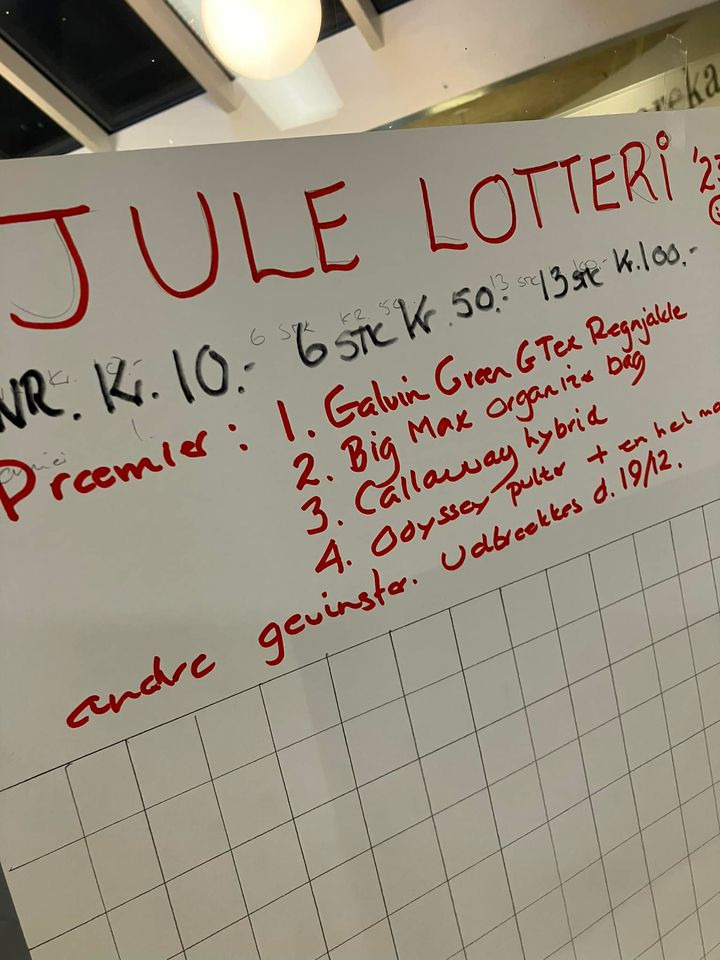 JULE LOTTERI '23
NR. Kr. 10.- 6 STK Kr. 50.- 13 stk Kr. 100.-
Præmier: 1. Galvin Green GTex Regnjakke
2. Big Max organizer bag
3. Callaway hybrid
4. Odyssey putter + en hel
andre gevinster. Udtrækkes d. 19/12.